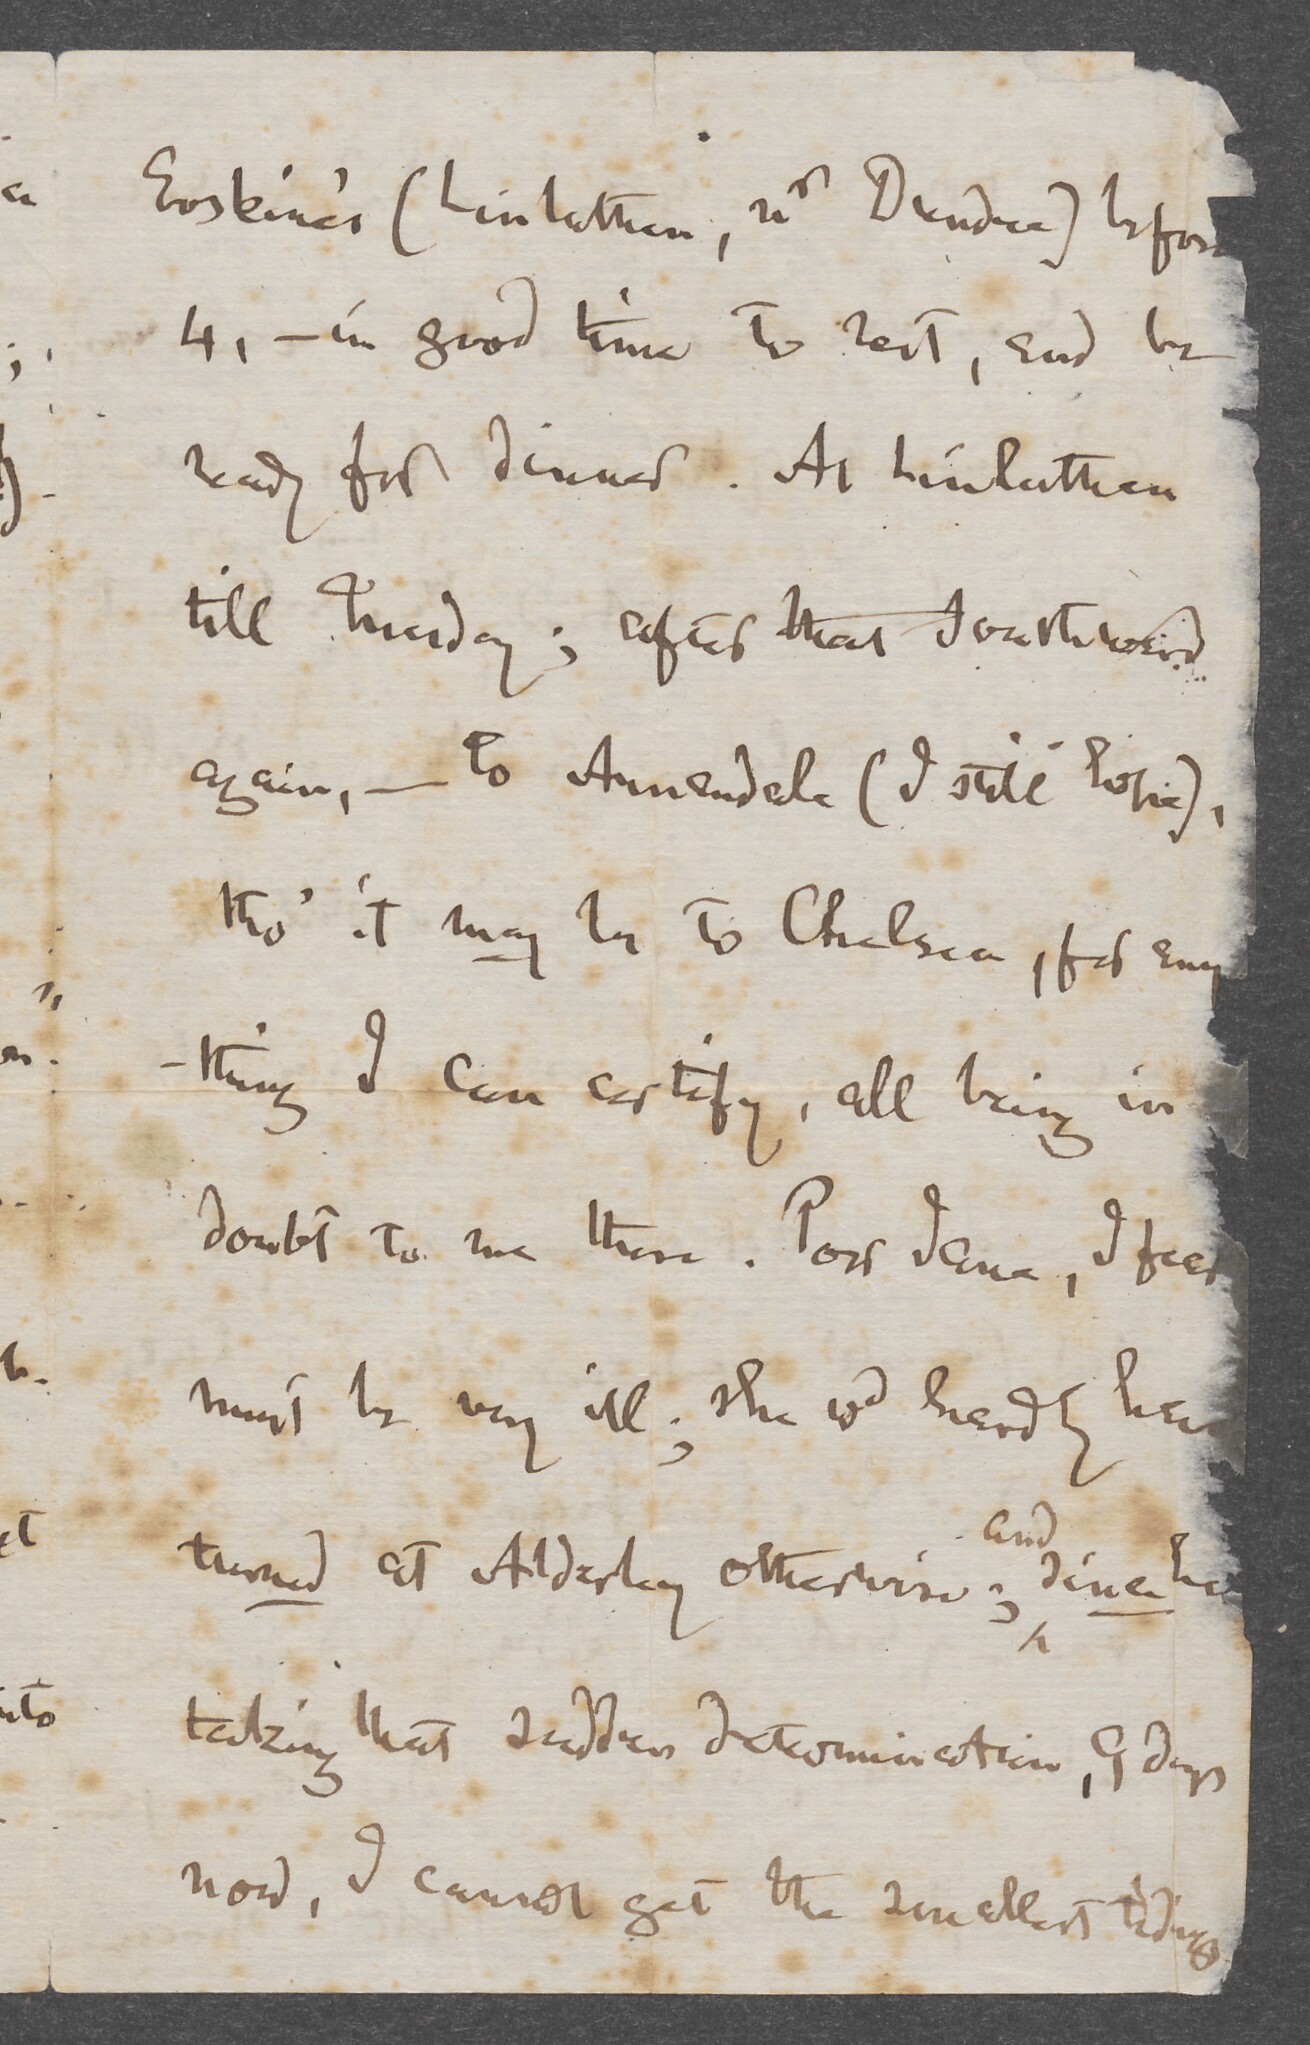 Erskine's (Linlathen, nr Dundee) before
4, – in good time to rest, and be
ready for dinner. At Linlathen
till Tuesday; after that Southward
again, — to Annandale (I still hope),
tho' it may be to Chelsea, for any
-thing I can certify, all being in
doubt to me there. Poor Jane, I fear
must be very ill; she wd hardly hav
turned at Alderley otherwise; and since he
taking that sudden determination, 9 days
now, I cannot get the smallest tidings